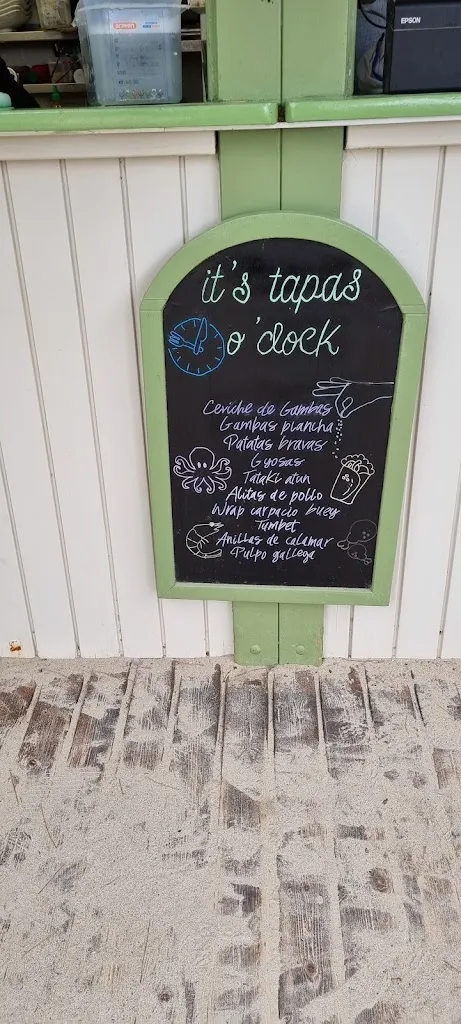 EPSON
it's tapas
o'clock
Ceviche de Gambas
Gambas plancha
Patatas bravas
Gyosas
Tataki atun
Alitas de pollo
Wrap carpacio buey
Tumbet
Anillas de calamar
Pulpo gallega